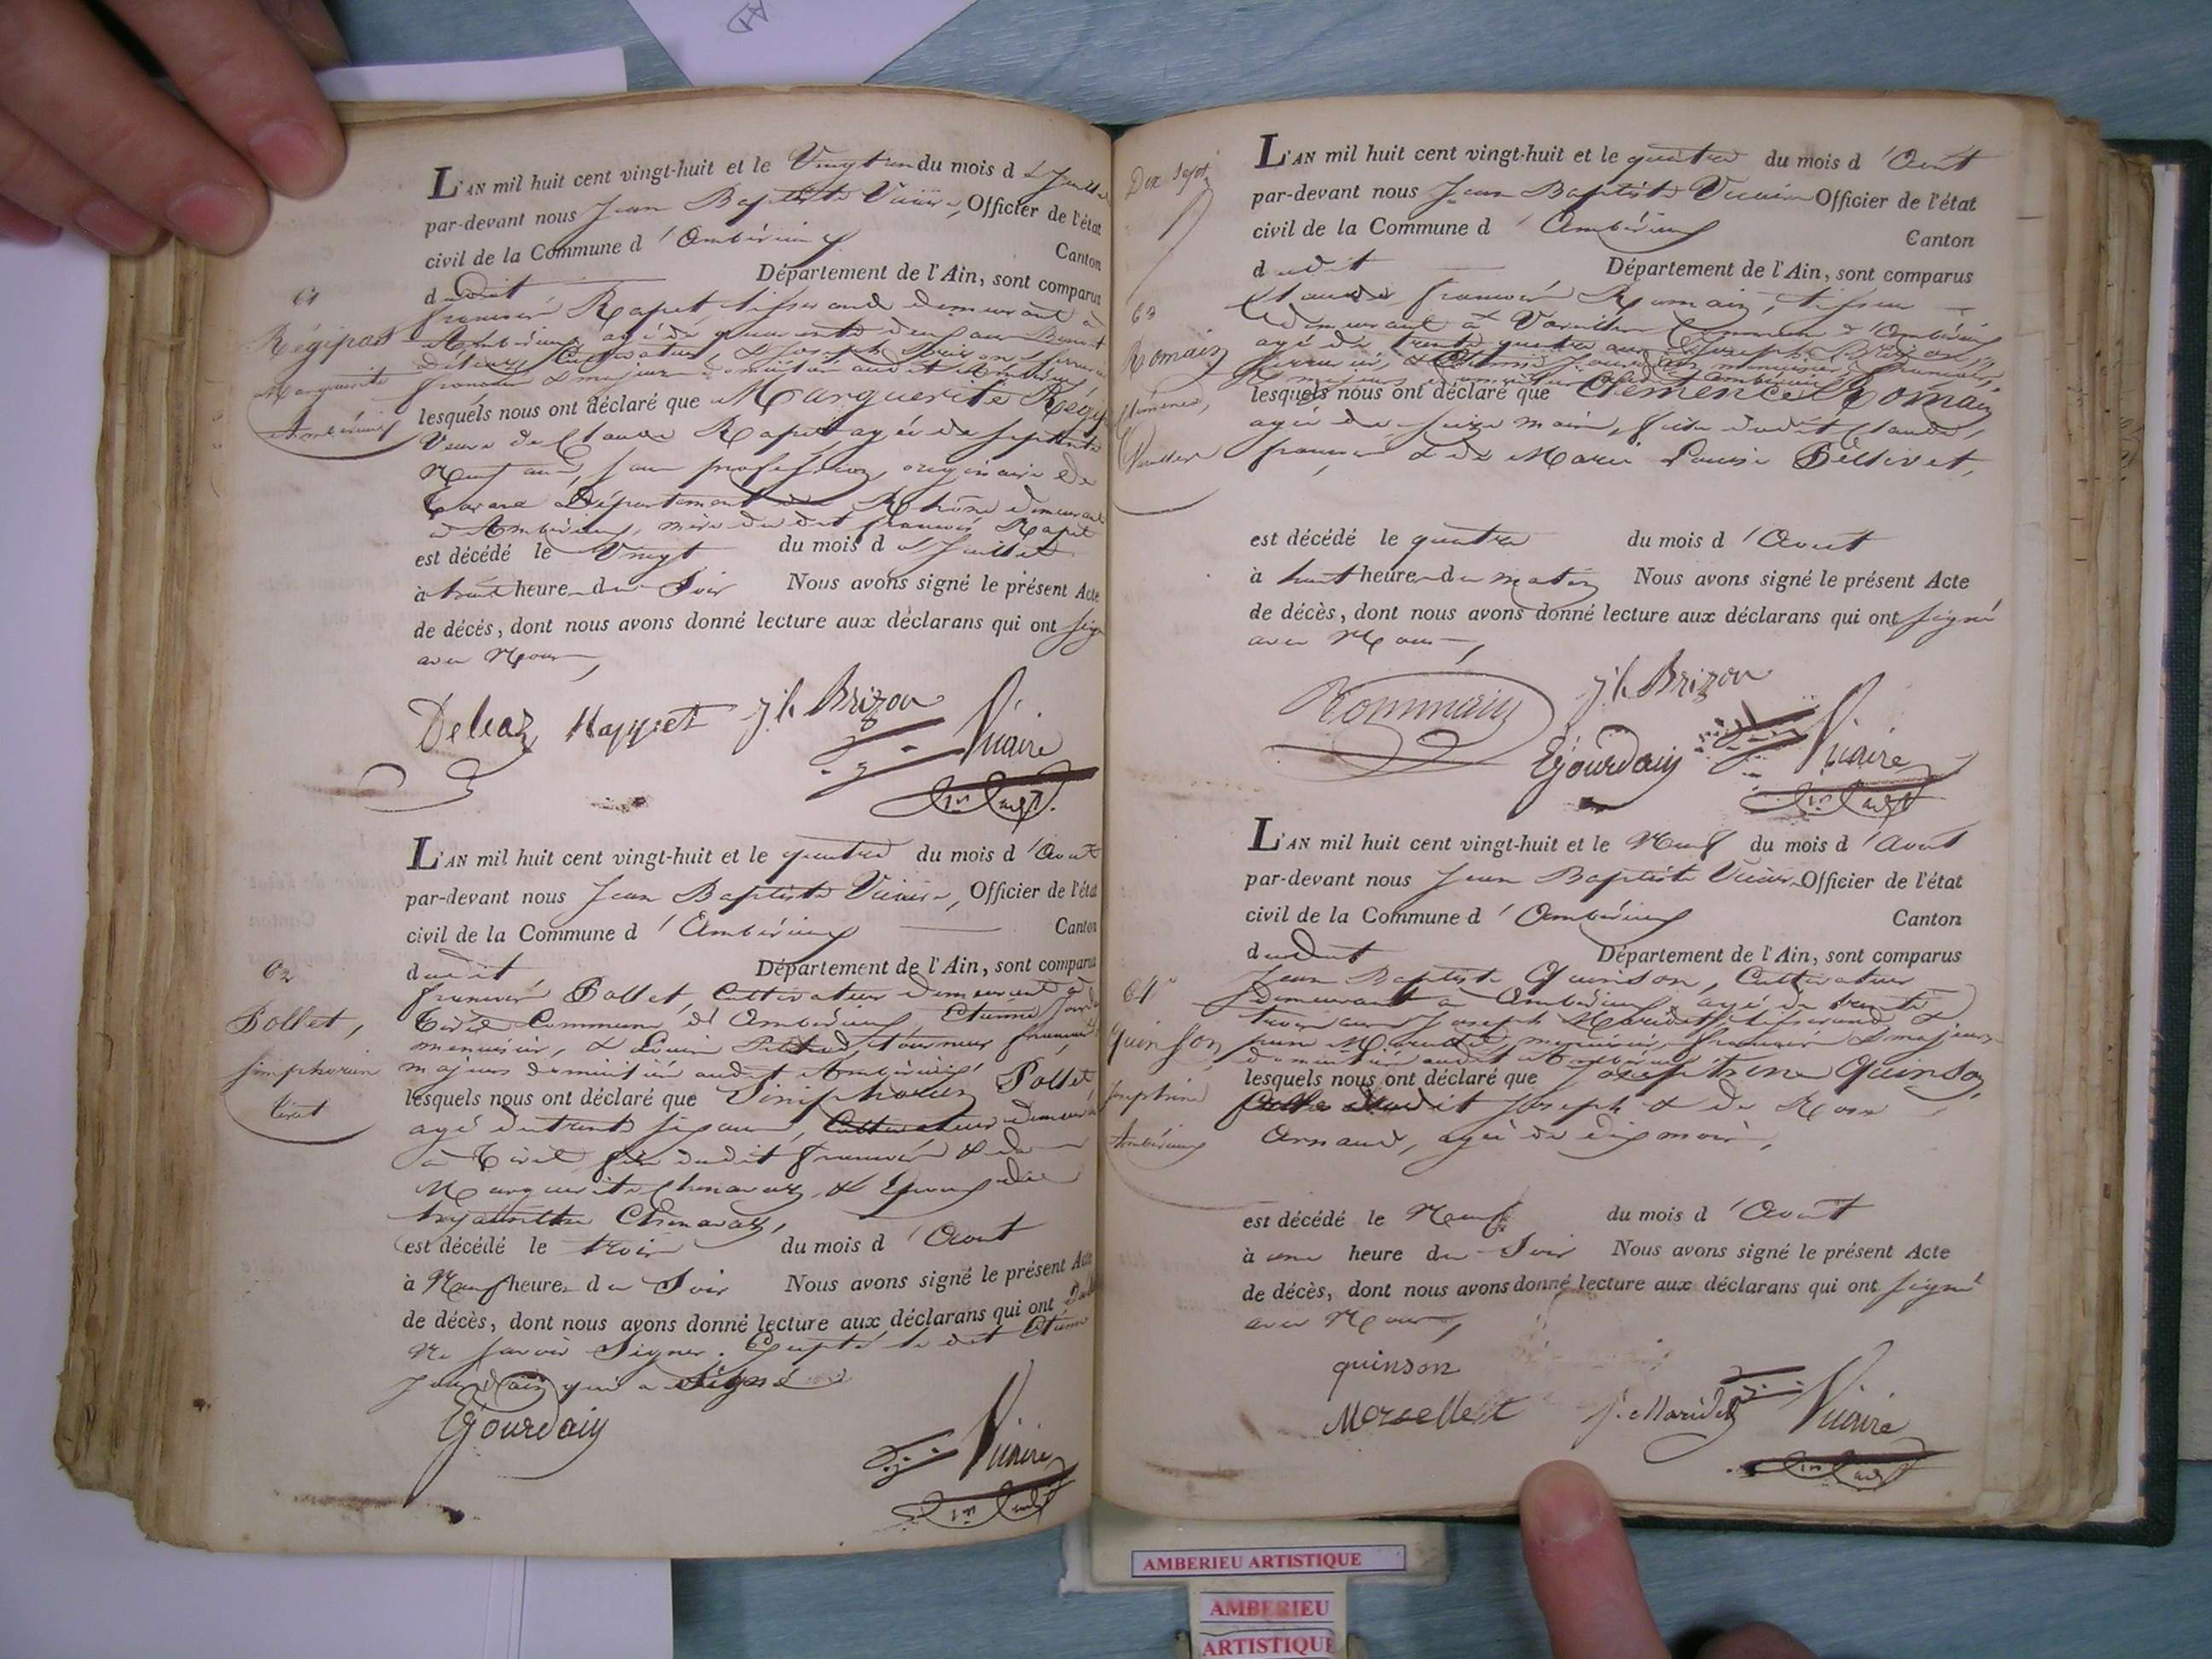 L'AN mil huit cent vingt-huit et le Vingt un du mois de Juillet
par-devant nous Jean Baptiste Vicaire, Officier de l'état
civil de la Commune d'Ambérieux Canton
dudit Département de l'Ain, sont comparus
61
françois Rapet, tisserand demeurant à
Régipas
Ambérieux, agé de quarante deux ans Benoit
cultivateur, & Joseph
Marguerite
français & majeurs domiciliés audit Ambérieux,
Ambérieux
lesquels nous ont déclaré que Marguerite
Veuve de Claude Rapet agée de septante
Neuf ans, sans profession, originaire de
Tarare Département du Rhône demeurant
à Ambérieux, mère dudit françois Rapet
est décédé le Vingt du mois de Juillet
à heure du Soir Nous avons signé le présent Acte
de décès, dont nous avons donné lecture aux déclarans qui ont signé
avec Nous,
Jh Brizon
Vicaire
L'AN mil huit cent vingt-huit et le quatre du mois d'Aout
par-devant nous Jean Baptiste Vicaire, Officier de l'état
civil de la Commune d'Ambérieux Canton
dudit Département de l'Ain, sont comparus
62
françois Pollet, Cultivateur demeurant à
Pollet,
Tiret Commune d'Ambérieux, Etienne Jourdain
menuisier, & Louis tourneur français,
Simphorien
majeurs domiciliés audit Ambérieux
Tiret
lesquels nous ont déclaré que Simphorien Pollet
agé de trente six ans, Cultivateur demeurant
à Tiret fils dudit françois & de
Marguerite Chenavaz, & Epoux de
Chenavaz,
est décédé le trois du mois d'Aout
à Neuf heures du Soir Nous avons signé le présent Acte
de décès, dont nous avons donné lecture aux déclarans qui ont
Ne savoir Signer. Excepté le dit Etienne
Jourdain qui a Signé
EJourdain
Vicaire
Dix Sept
L'AN mil huit cent vingt-huit et le quatre du mois d'Aout
par-devant nous Jean Baptiste Vicaire Officier de l'état
civil de la Commune d'Ambérieux Canton
dudit Département de l'Ain, sont comparus
63
Claude françois Romain, tisseur
demeurant à Vareilles Commune d'Ambérieux
Romain
agé de trente quatre ans, Joseph Brizon,
serrurier, & Etienne Jourdain, menuisier français,
Clémence,
& majeurs domiciliés audit Ambérieux
lesquels nous ont déclaré que Clémence Romain
agée de seize mois, fille dudit Claude,
françois & de Marie Louise
est décédé le quatre du mois d'Aout
à huit heures du matin Nous avons signé le présent Acte
de décès, dont nous avons donné lecture aux déclarans qui ont signé
avec Nous,
Rommain Jh Brizon
EJourdain Vicaire
L'AN mil huit cent vingt-huit et le Neuf du mois d'Aout
par-devant nous Jean Baptiste Vicaire Officier de l'état
civil de la Commune d'Ambérieux Canton
dudit Département de l'Ain, sont comparus
64
Jean Baptiste Quinson, Cultivateur
demeurant à Ambérieux, agé de trente
trois ans Joseph tisserand &
Quinson
menuisier français & majeurs
domiciliés audit Ambérieux
Joséphine
lesquels nous ont déclaré que Joséphine Quinson,
fille dudit Joseph & de Rose
Ambérieux
Arnaud, agée de dix mois,
est décédé le Neuf du mois d'Aout
à une heure du Soir Nous avons signé le présent Acte
de décès, dont nous avons donné lecture aux déclarans qui ont signé
avec Nous,
quinson
Vicaire
AMBERIEU ARTISTIQUE
AMBERIEU
ARTISTIQUE